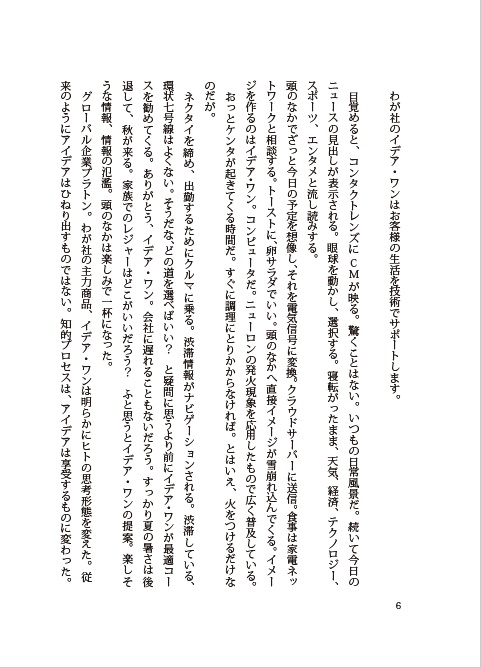 わが社のイデア・ワンはお客様の生活を技術でサポートします。
目覚めると、コンタクトレンズにCMが映る。驚くことはない。いつもの日常風景だ。続いて今日の
ニュースの見出しが表示される。眼球を動かし、選択する。寝転がったまま、天気、経済、テクノロジー、
スポーツ、エンタメと流し読みする。
頭のなかでざっと今日の予定を想像し、それを電気信号に変換。クラウドサーバーに送信。食事は家電ネッ
トワークと相談する。トーストに、卵サラダでいい。頭のなかへ直接イメージが雪崩れ込んでくる。イメー
ジを作るのはイデア・ワン。コンピュータだ。ニューロンの発火現象を応用したもので広く普及している。
おっとケンタが起きてくる時間だ。すぐに調理にとりかからなければ。とはいえ、火をつけるだけな
のだが。
ネクタイを締め、出勤するためにクルマに乗る。渋滞情報がナビゲーションされる。渋滞している、
環状七号線はよくない。そうだな、どの道を選べばいい？　と疑問に思うより前にイデア・ワンが最適コー
スを勧めてくる。ありがとう、イデア・ワン。会社に遅れることもないだろう。すっかり夏の暑さは後
退して、秋が来る。家族でのレジャーはどこがいいだろう？　ふと思うとイデア・ワンの提案。楽しそ
うな情報、情報の氾濫。頭のなかは楽しみで一杯になった。
グローバル企業プラトン。わが社の主力商品、イデア・ワンは明らかにヒトの思考形態を変えた。従
来のようにアイデアはひねり出すものではない。知的プロセスは、アイデアは享受するものに変わった。
6